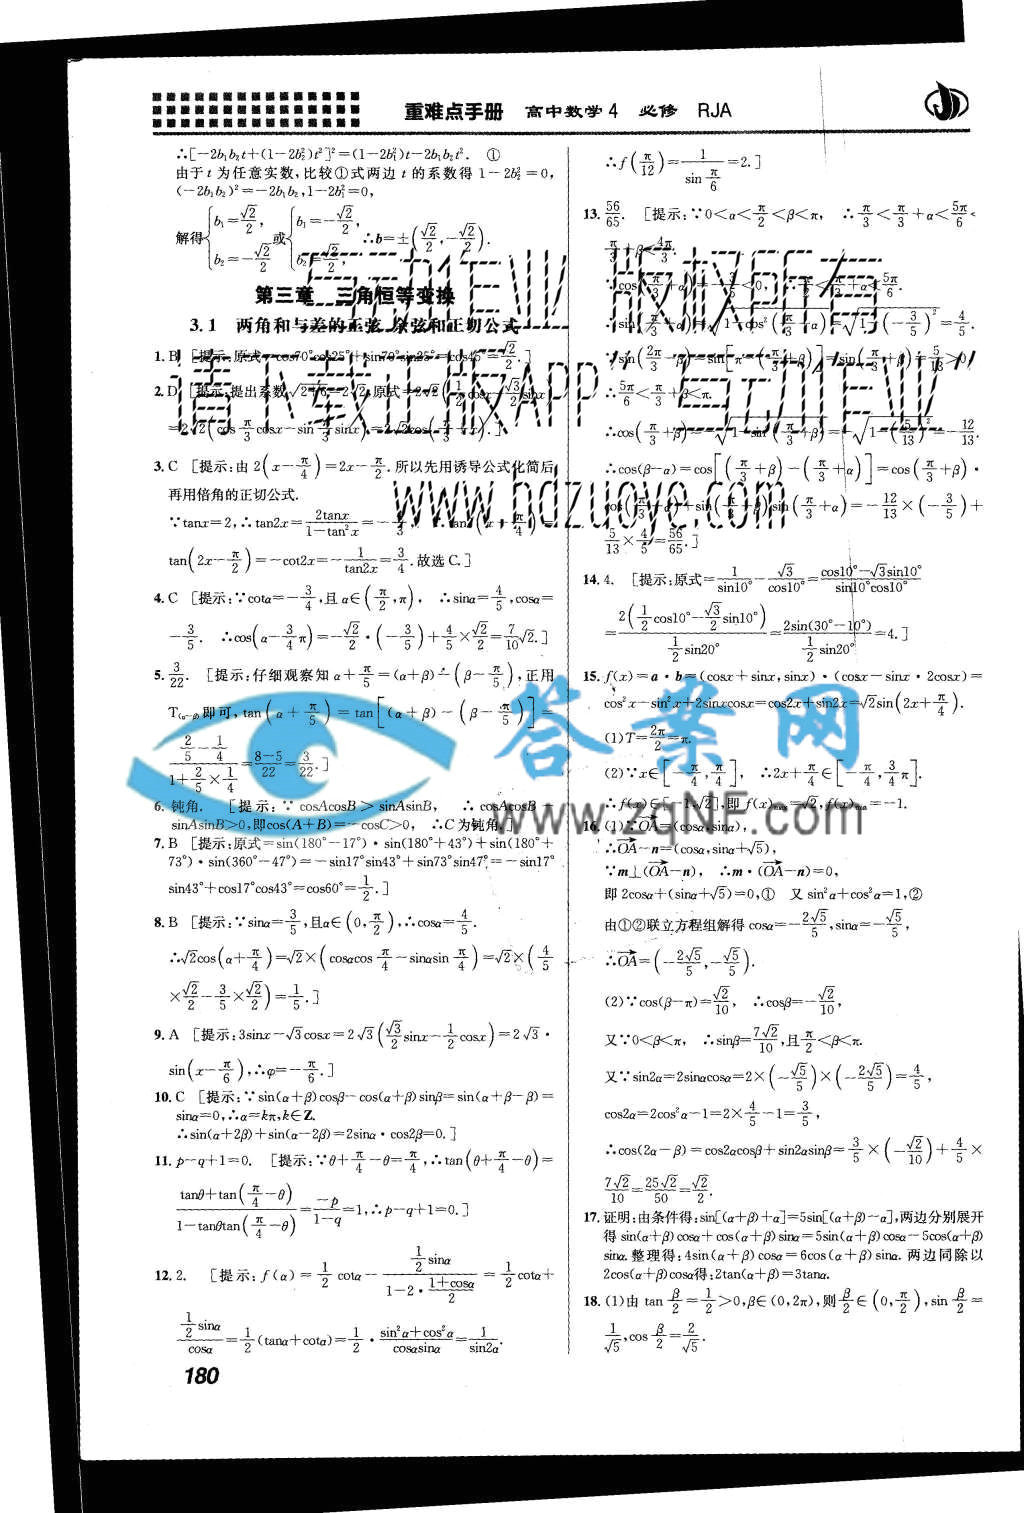 重难点手册 高中数学4 必修 RJA
∴[-2b₁b₂t+(1-2b₂²)t²]²=(1-2b₁²)t-2b₁b₂t². ①
由于 t 为任意实数,比较①式两边 t 的系数得 1-2b₂²=0,
(-2b₁b₂)²=-2b₁b₂,1-2b₁²=0,
解得{b₁=√2/2, b₂=-√2/2 或{b₁=-√2/2, b₂=√2/2, ∴b=±(√2/2,-√2/2).
第三章 三角恒等变换
3.1 两角和与差的正弦、余弦和正切公式
1.B [提示:原式=cos70°cos25°+sin70°sin25°=cos45°=√2/2.]
2.D [提示:提出系数
3.C [提示:由 2(x-π/4)=2x-π/2.所以先用诱导公式化简后
再用倍角的正切公式.
∵tanx=2,∴tan2x=2tanx/(1-tan²x)=-
tan(2x-π/2)=-cot2x=-1/tan2x=3/4.故选C.]
4.C [提示:∵cotα=-3/4,且α∈(π/2,π), ∴sinα=4/5,cosα=
-3/5. ∴cos(α-3/4π)=-√2/2·(-3/5)+4/5×√2/2=7/10√2.]
5.3/22. [提示:仔细观察知 α+π/5=(α+β)-(β-π/5),正用
T(α-β)即可,tan(α+π/5)=tan[(α+β)-(β-π/5)]=
(2/5-1/4)/(1+2/5×1/4)=(8-5)/22=3/22.]
6.钝角. [提示:∵cosAcosB>sinAsinB, ∴cosAcosB-
sinAsinB>0,即cos(A+B)=-cosC>0, ∴C为钝角.]
7.B [提示:原式=sin(180°-17°)·sin(180°+43°)+sin(180°+
73°)·sin(360°-47°)=-sin17°sin43°+sin73°sin47°=-sin17°
sin43°+cos17°cos43°=cos60°=1/2.]
8.B [提示:∵sinα=3/5,且α∈(0,π/2),∴cosα=4/5.
∴√2cos(α+π/4)=√2×(cosαcosπ/4-sinαsinπ/4)=√2×(4/5
×√2/2-3/5×√2/2)=1/5.]
9.A [提示:3sinx-√3cosx=2√3(√3/2sinx-1/2cosx)=2√3·
sin(x-π/6),∴φ=-π/6.]
10.C [提示:∵sin(α+β)cosβ-cos(α+β)sinβ=sin(α+β-β)=
sinα=0,∴α=kπ,k∈Z.
∴sin(α+2β)+sin(α-2β)=2sinα·cos2β=0.]
11.p-q+1=0. [提示:∵θ+π/4-θ=π/4,∴tan(θ+π/4-θ)=
(tanθ+tan(π/4-θ))/(1-tanθtan(π/4-θ))=-p/(1-q)=1,∴p-q+1=0.]
12.2. [提示:f(α)=1/2cotα-(1/2sinα)/(1-2·(1+cosα)/2)=1/2cotα+
(1/2sinα)/cosα=1/2(tanα+cotα)=1/2·(sin²α+cos²α)/(cosαsinα)=1/sin2α.
180
∴f(π/12)=1/sin(π/6)=2.]
13.56/65. [提示:∵0<α<π/2<β<π, ∴π/3<π/3+α<5π/6<
π/3+β<4π/3.
∴5π/6<π/3+β<π.
∴cos(β-α)=cos[(π/3+β)-(π/3+α)]=cos(π/3+β)·
cos(π/3+α)+sin(π/3+β)sin(π/3+α)=-12/13×(-3/5)+
5/13×4/5=56/65.]
14.4. [提示:原式=1/sin10°-√3/cos10°=(cos10°-√3sin10°)/(sin10°cos10°)
=2(1/2cos10°-√3/2sin10°)/(1/2sin20°)=2sin(30°-10°)/(1/2sin20°)=4.]
15.f(x)=a·b=(cosx+sinx,sinx)·(cosx-sinx·2cosx)=
cos²x-sin²x+2sinxcosx=cos2x+sin2x=√2sin(2x+π/4).
(1)T=2π/2=π.
(2)∵x∈[-π/4,π/4], ∴2x+π/4∈[-π/4,3/4π].
∴f(x)∈[-1,√2],即 f(x)max=√2,f(x)min=-1.
16.(1)∵OA=(cosα,sinα),
∴OA-n=(cosα,sinα+√5),
∵m⊥(OA-n), ∴m·(OA-n)=0,
即 2cosα+(sinα+√5)=0,① 又 sin²α+cos²α=1,②
由①②联立方程组解得 cosα=-2√5/5,sinα=-√5/5,
∴OA=(-2√5/5,-√5/5).
(2)∵cos(β-π)=√2/10, ∴cosβ=-√2/10,
又∵0<β<π, ∴sinβ=7√2/10,且π/2<β<π.
又∵sin2α=2sinαcosα=2×(-√5/5)×(-2√5/5)=4/5,
cos2α=2cos²α-1=2×4/5-1=3/5,
∴cos(2α-β)=cos2αcosβ+sin2αsinβ=3/5×(-√2/10)+4/5×
7√2/10=25√2/50=√2/2.
17.证明:由条件得:sin[(α+β)+α]=5sin[(α+β)-α],两边分别展开
得 sin(α+β)cosα+cos(α+β)sinα=5sin(α+β)cosα-5cos(α+β)
sinα.整理得:4sin(α+β)cosα=6cos(α+β)sinα.两边同除以
2cos(α+β)cosα得:2tan(α+β)=3tanα.
18.(1)由 tanβ/2=1/2>0,β∈(0,2π),则β/2∈(0,π/2),sinβ/2=
1/√5,cosβ/2=2/√5.
请下载正版APP"互动作业"
www.hdzuoye.com
答案网
www.zqNF.com